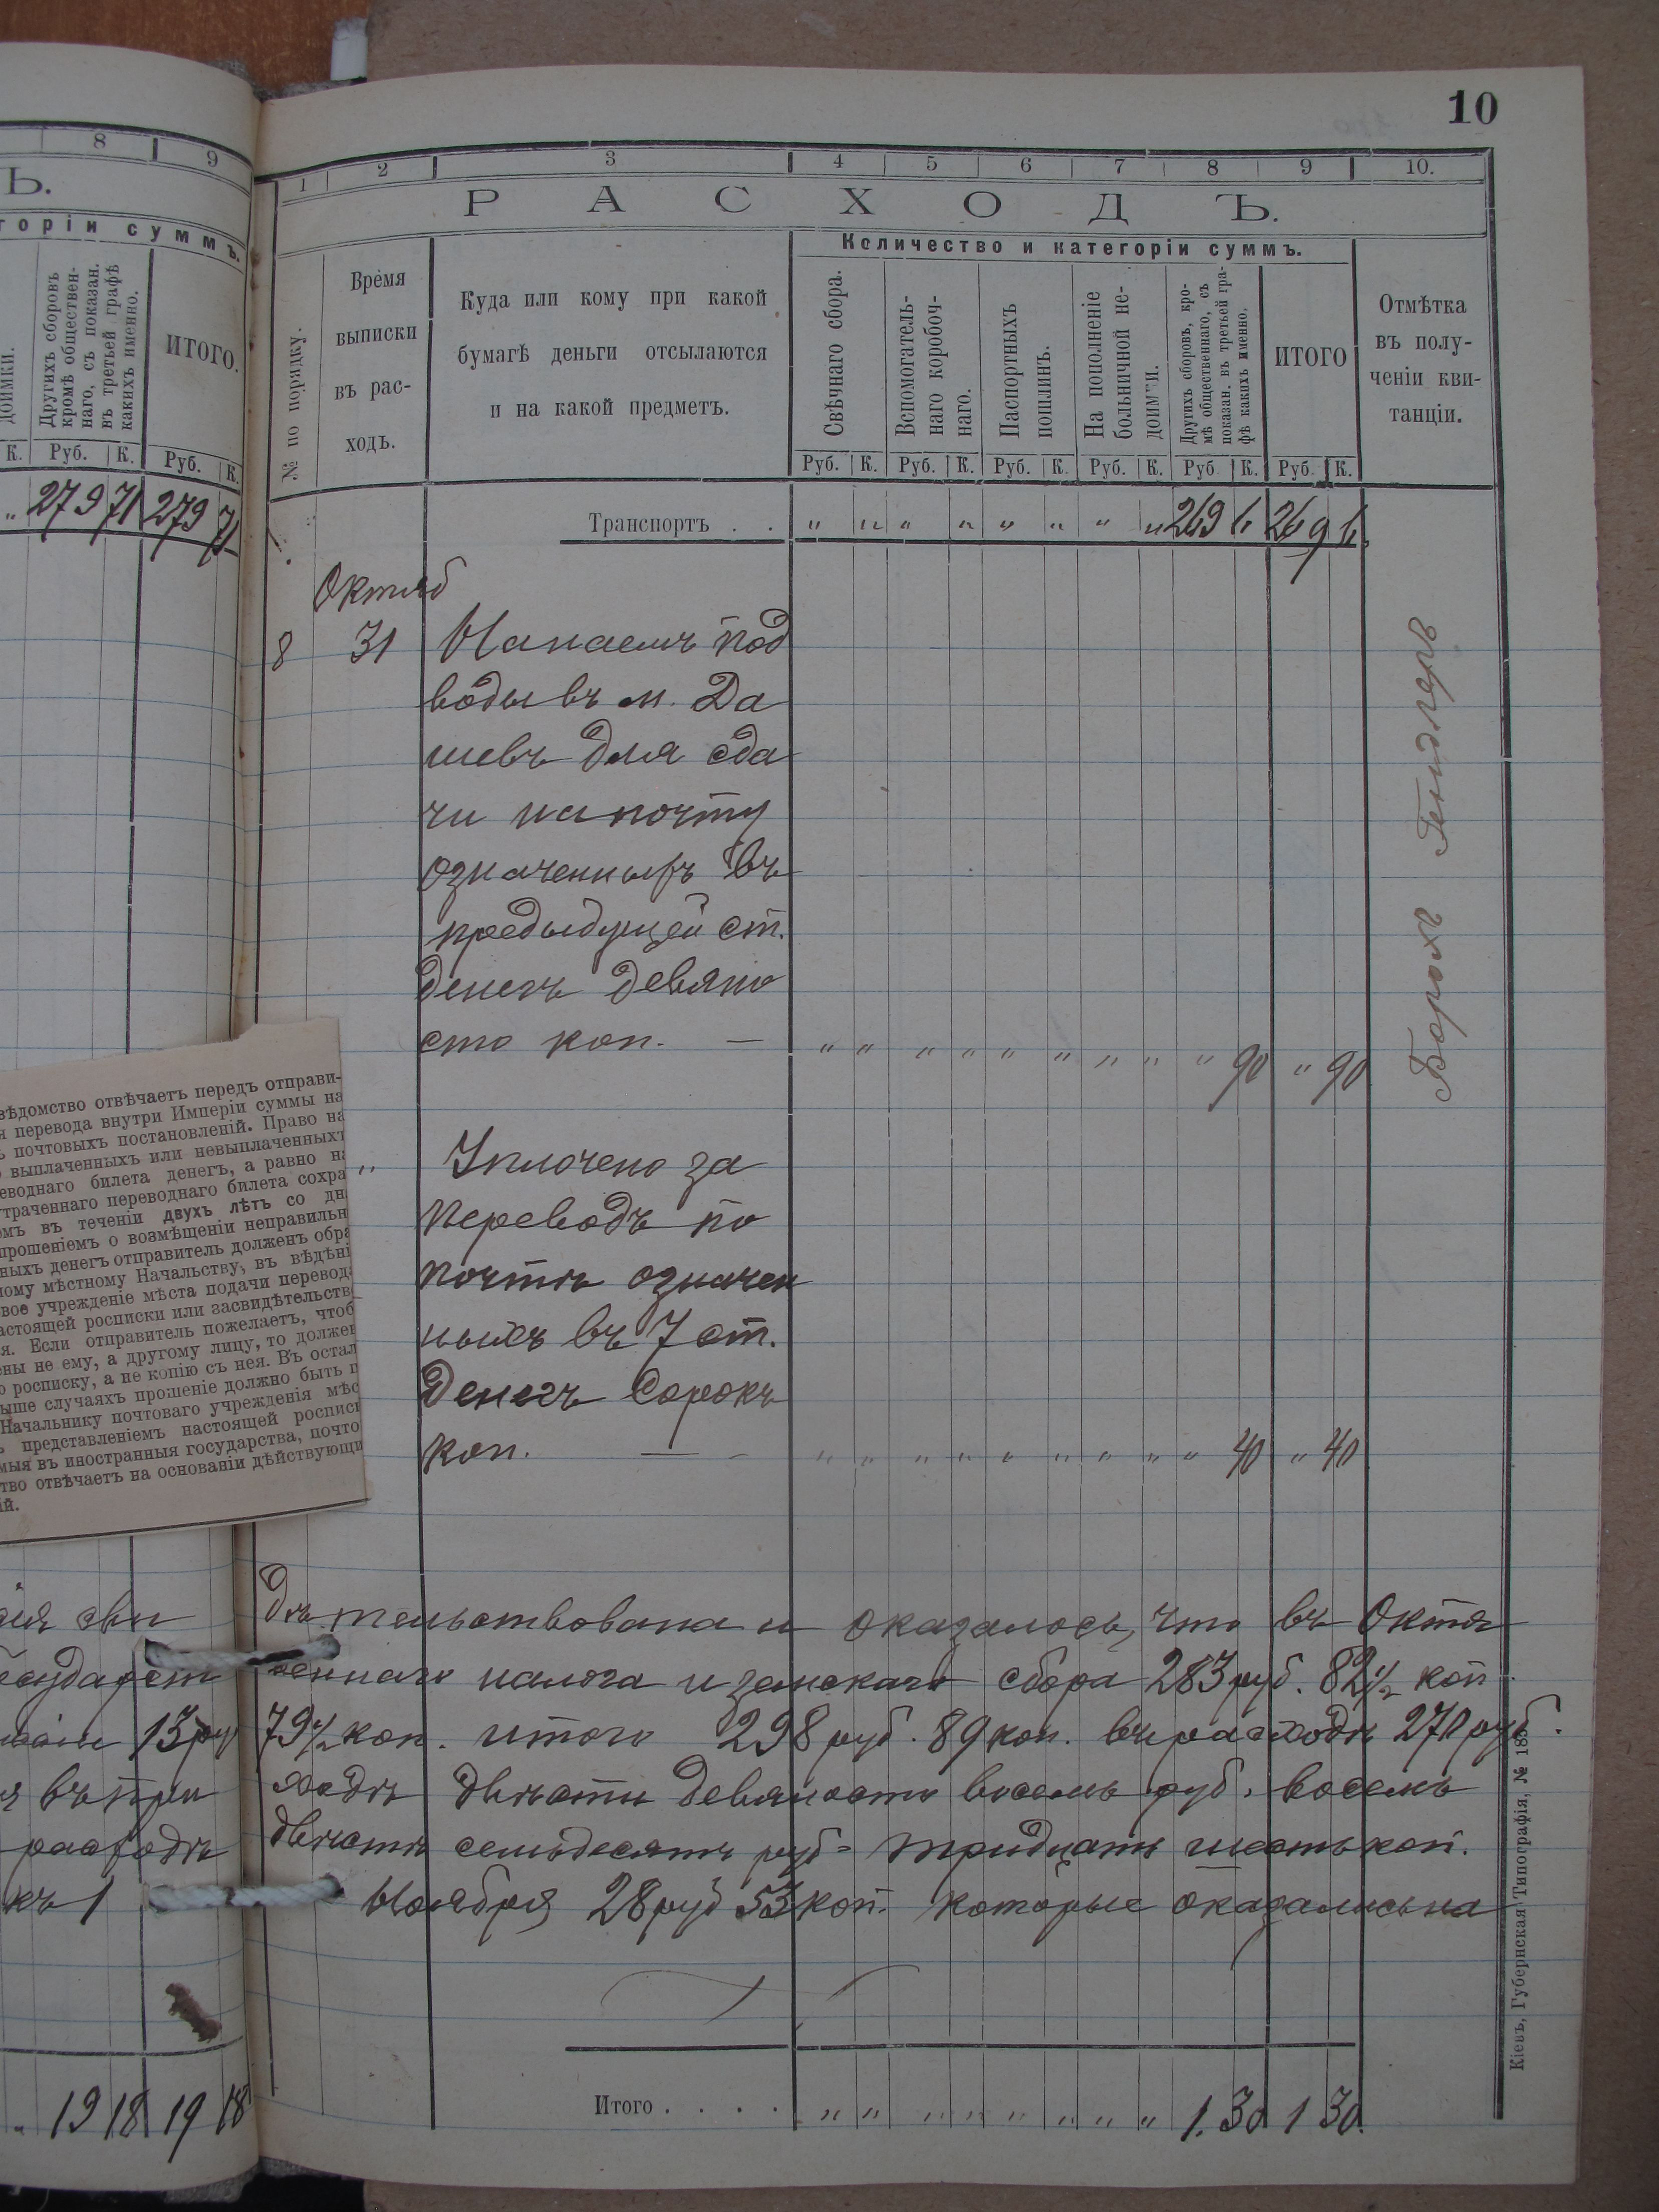 10
8 9
Ъ.
горіи суммъ.
доимки.
Другихъ сборовъ
кромѣ обществен-
наго, съ показан.
въ третьей графѣ
какихъ именно.
ИТОГО.
К. Руб. К. Руб. К.
„ 279 71 279 71
1 2 3 4 5 6 7 8 9 10.
РАСХОДЪ.
Количество и категоріи суммъ.
№ по порядку.
Время
выписки
въ рас-
ходъ.
Куда или кому при какой
бумагѣ деньги отсылаются
и на какой предметъ.
Свѣчнаго сбора.
Вспомогатель-
наго коробоч-
наго.
Паспортныхъ
пошлинъ.
На пополненіе
больничной не-
доимки.
Другихъ сборовъ, кро-
мѣ общественнаго, съ
показан. въ третьей гра-
фѣ какихъ именно.
ИТОГО
Отмѣтка
въ полу-
ченіи кви-
танціи.
Руб. К. Руб. К. Руб. К. Руб. К. Руб. К. Руб. К.
Транспортъ . . „ „ „ „ „ „ „ „ 269 6 269 6
Октяб
8 31 Нанаемъ под
воды въ м. Да
шевъ для сда
чи на почту
означенныхъ въ
предыдущей ст.
денегъ девяно
сто коп. — „ „ „ „ „ „ „ „ „ 90 „ 90
„ Уплочено за
переводъ по
почтѣ означен
ныхъ въ 7 ст.
денегъ сорокъ
коп. — — „ „ „ „ „ „ „ „ „ 40 „ 40
Борохъ
вѣдомство отвѣчаетъ передъ отправи-
я перевода внутри Имперіи суммы на
ъ почтовыхъ постановленій. Право на
о выплаченныхъ или невыплаченныхъ
еводнаго билета денегъ, а равно на
утраченнаго переводнаго билета сохра
омъ въ теченіи двухъ лѣтъ со дн
прошеніемъ о возмѣщеніи неправильн
ныхъ денегъ отправитель долженъ обра
ному мѣстному Начальству, въ вѣдѣні
вое учрежденіе мѣста подачи перевода
астоящей росписки или засвидѣтельств
я. Если отправитель пожелаетъ, чтоб
ены не ему, а другому лицу, то должен
ю росписку, а не копію съ нея. Въ остал
ыше случаяхъ прошеніе должно быть п
Начальнику почтоваго учрежденія мѣс
ъ представленіемъ настоящей росписк
мыя въ иностранныя государства, почто
тво отвѣчаетъ на основаніи дѣйствующи
ій.
дѣтельствована и оказалось, что въ Октя
веннаго налога и земскаго сбора 283 руб. 82½ коп
13 ру 79½ коп. итого 298 руб. 89 коп. въ расходѣ 270 руб.
я въ при ходѣ двѣсти девяносто восемь руб. восемь
расходѣ двѣсти семьдесятъ руб. тридцать шесть коп.
къ 1 Ноября 28 руб 53 коп. которые оказались на
19 18 19 18
Итого . . . . „ „ „ „ „ „ „ „ 1. 30 1 30.
Кіевъ, Губернская Типографія, № 188